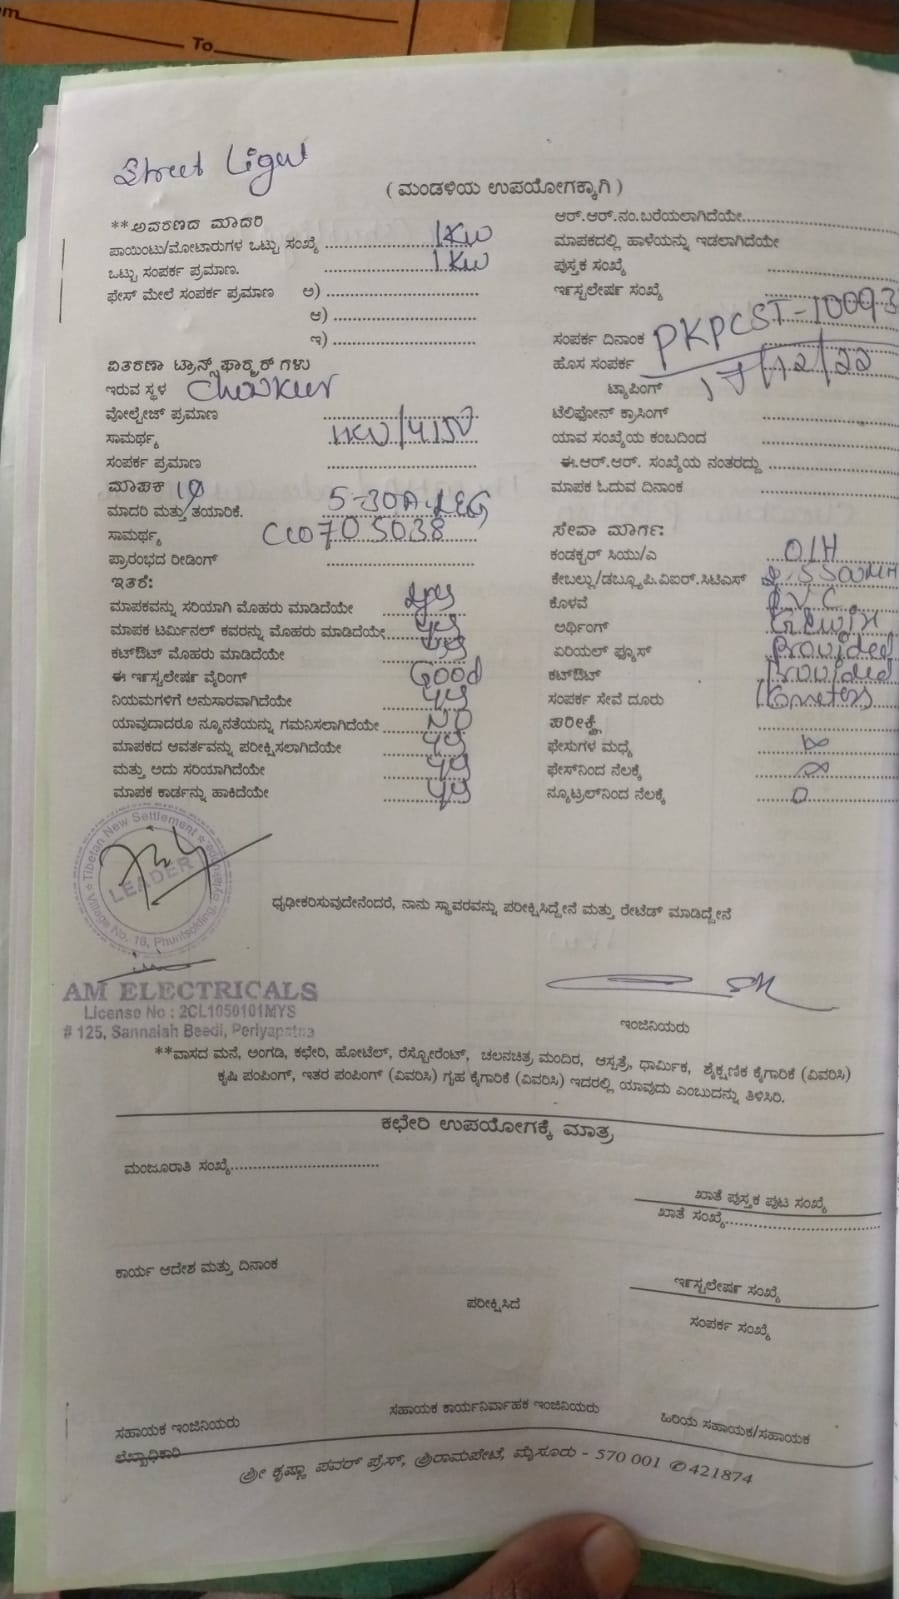 To
Street Light
( ಮಂಡಳಿಯ ಉಪಯೋಗಕ್ಕಾಗಿ )
**ಅವರಣದ ಮಾದರಿ
ಪಾಯಿಂಟು/ಮೋಟಾರುಗಳ ಒಟ್ಟು ಸಂಖ್ಯೆ 1KW
ಒಟ್ಟು ಸಂಪರ್ಕ ಪ್ರಮಾಣ. 1KW
ಫೇಸ್ ಮೇಲೆ ಸಂಪರ್ಕ ಪ್ರಮಾಣ ಅ)
ಆ)
ಇ)
ವಿತರಣಾ ಟ್ರಾನ್ಸ್‌ಫಾರ್ಮರ್ ಗಳು
ಇರುವ ಸ್ಥಳ
ವೋಲ್ಟೇಜ್ ಪ್ರಮಾಣ
ಸಾಮರ್ಥ್ಯ 11KV/415V
ಸಂಪರ್ಕ ಪ್ರಮಾಣ
ಮಾಪಕ 1φ
ಮಾದರಿ ಮತ್ತು ತಯಾರಿಕೆ. 5-30A
ಸಾಮರ್ಥ್ಯ
ಪ್ರಾರಂಭದ ರೀಡಿಂಗ್
ಇತರೆ:
ಮಾಪಕವನ್ನು ಸರಿಯಾಗಿ ಮೊಹರು ಮಾಡಿದೆಯೇ yes
ಮಾಪಕ ಟರ್ಮಿನಲ್ ಕವರನ್ನು ಮೊಹರು ಮಾಡಿದೆಯೇ yes
ಕಟ್‌ಔಟ್ ಮೊಹರು ಮಾಡಿದೆಯೇ yes
ಈ ಇನ್‌ಸ್ಟಲೇಷನ್ ವೈರಿಂಗ್ Good
ನಿಯಮಗಳಿಗೆ ಅನುಸಾರವಾಗಿದೆಯೇ yes
ಯಾವುದಾದರೂ ನ್ಯೂನತೆಯನ್ನು ಗಮನಿಸಲಾಗಿದೆಯೇ NO
ಮಾಪಕದ ಆವರ್ತವನ್ನು ಪರೀಕ್ಷಿಸಲಾಗಿದೆಯೇ yes
ಮತ್ತು ಅದು ಸರಿಯಾಗಿದೆಯೇ yes
ಮಾಪಕ ಕಾರ್ಡನ್ನು ಹಾಕಿದೆಯೇ yes
ಆರ್.ಆರ್.ನಂ.ಬರೆಯಲಾಗಿದೆಯೇ
ಮಾಪಕದಲ್ಲಿ ಹಾಳೆಯನ್ನು ಇಡಲಾಗಿದೆಯೇ
ಪುಸ್ತಕ ಸಂಖ್ಯೆ
ಇನ್‌ಸ್ಟಲೇಷನ್ ಸಂಖ್ಯೆ
ಸಂಪರ್ಕ ದಿನಾಂಕ PKPCST-10093
ಹೊಸ ಸಂಪರ್ಕ 17/12/22
ಟ್ಯಾಪಿಂಗ್
ಟೆಲಿಫೋನ್ ಕ್ರಾಸಿಂಗ್
ಯಾವ ಸಂಖ್ಯೆಯ ಕಂಬದಿಂದ
ಈ.ಆರ್.ಆರ್. ಸಂಖ್ಯೆಯ ನಂತರದ್ದು
ಮಾಪಕ ಓದುವ ದಿನಾಂಕ
ಸೇವಾ ಮಾರ್ಗ:
ಕಂಡಕ್ಟರ್ ಸಿಯು/ಎ O/H
ಕೇಬಲ್ಲು/ಡಬ್ಲ್ಯೂ.ಪಿ.ವಿಐಆರ್.ಸಿಟಿಎಸ್
ಕೊಳವೆ P.V.C.
ಅರ್ಥಿಂಗ್
ಏರಿಯಲ್ ಫ್ಯೂಸ್ Provided
ಕಟ್‌ಔಟ್ Provided
ಸಂಪರ್ಕ ಸೇವೆ ದೂರು
ಪರೀಕ್ಷೆ
ಫೇಸುಗಳ ಮಧ್ಯೆ ∞
ಫೇಸ್‌ನಿಂದ ನೆಲಕ್ಕೆ ∞
ನ್ಯೂಟ್ರಲ್‌ನಿಂದ ನೆಲಕ್ಕೆ 0
Tibetan New Settlement
LEADER
Village No. 18, Phuntsokling,
ಧೃಢೀಕರಿಸುವುದೇನೆಂದರೆ, ನಾನು ಸ್ಥಾವರವನ್ನು ಪರೀಕ್ಷಿಸಿದ್ದೇನೆ ಮತ್ತು ರೇಟೆಡ್ ಮಾಡಿದ್ದೇನೆ
AM ELECTRICALS
License No : 2CL1050101MYS
# 125, Sannaiah Beedi, Periyapatna
ಇಂಜಿನಿಯರು
**ವಾಸದ ಮನೆ, ಅಂಗಡಿ, ಕಛೇರಿ, ಹೋಟೆಲ್, ರೆಸ್ಟೋರೆಂಟ್, ಚಲನಚಿತ್ರ ಮಂದಿರ, ಆಸ್ಪತ್ರೆ, ಧಾರ್ಮಿಕ, ಶೈಕ್ಷಣಿಕ ಕೈಗಾರಿಕೆ (ವಿವರಿಸಿ)
ಕೃಷಿ ಪಂಪಿಂಗ್, ಇತರ ಪಂಪಿಂಗ್ (ವಿವರಿಸಿ) ಗೃಹ ಕೈಗಾರಿಕೆ (ವಿವರಿಸಿ) ಇದರಲ್ಲಿ ಯಾವುದು ಎಂಬುದನ್ನು ತಿಳಿಸಿರಿ.
ಕಛೇರಿ ಉಪಯೋಗಕ್ಕೆ ಮಾತ್ರ
ಮಂಜೂರಾತಿ ಸಂಖ್ಯೆ
ಖಾತೆ ಪುಸ್ತಕ ಪುಟ ಸಂಖ್ಯೆ
ಖಾತೆ ಸಂಖ್ಯೆ
ಕಾರ್ಯ ಆದೇಶ ಮತ್ತು ದಿನಾಂಕ
ಇನ್‌ಸ್ಟಲೇಷನ್ ಸಂಖ್ಯೆ
ಪರೀಕ್ಷಿಸಿದೆ
ಸಂಪರ್ಕ ಸಂಖ್ಯೆ
ಸಹಾಯಕ ಇಂಜಿನಿಯರು
ಸಹಾಯಕ ಕಾರ್ಯನಿರ್ವಾಹಕ ಇಂಜಿನಿಯರು
ಹಿರಿಯ ಸಹಾಯಕ/ಸಹಾಯಕ
ಲೆಖ್ಖಾಧಿಕಾರಿ
ಶ್ರೀ ಕೃಷ್ಣಾ ಪವರ್ ಪ್ರೆಸ್, ಶ್ರೀರಾಮಪೇಟೆ, ಮೈಸೂರು - 570 001 ✆ 421874